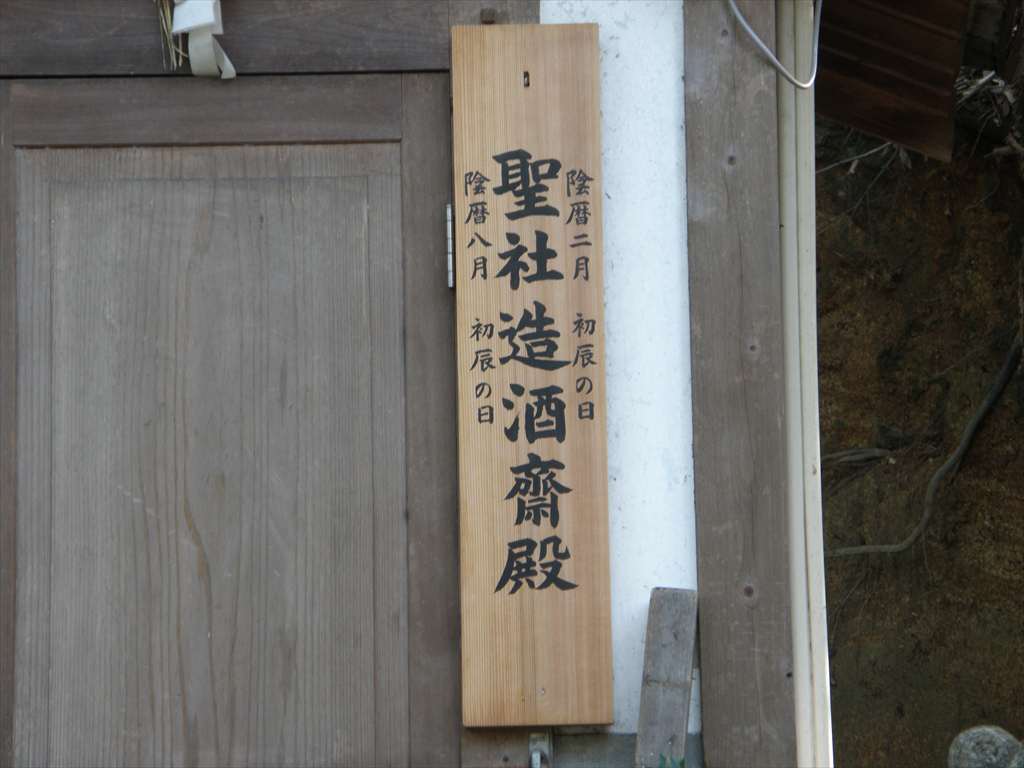 陰暦二月 初辰の日
聖社造酒齋殿
陰暦八月 初辰の日